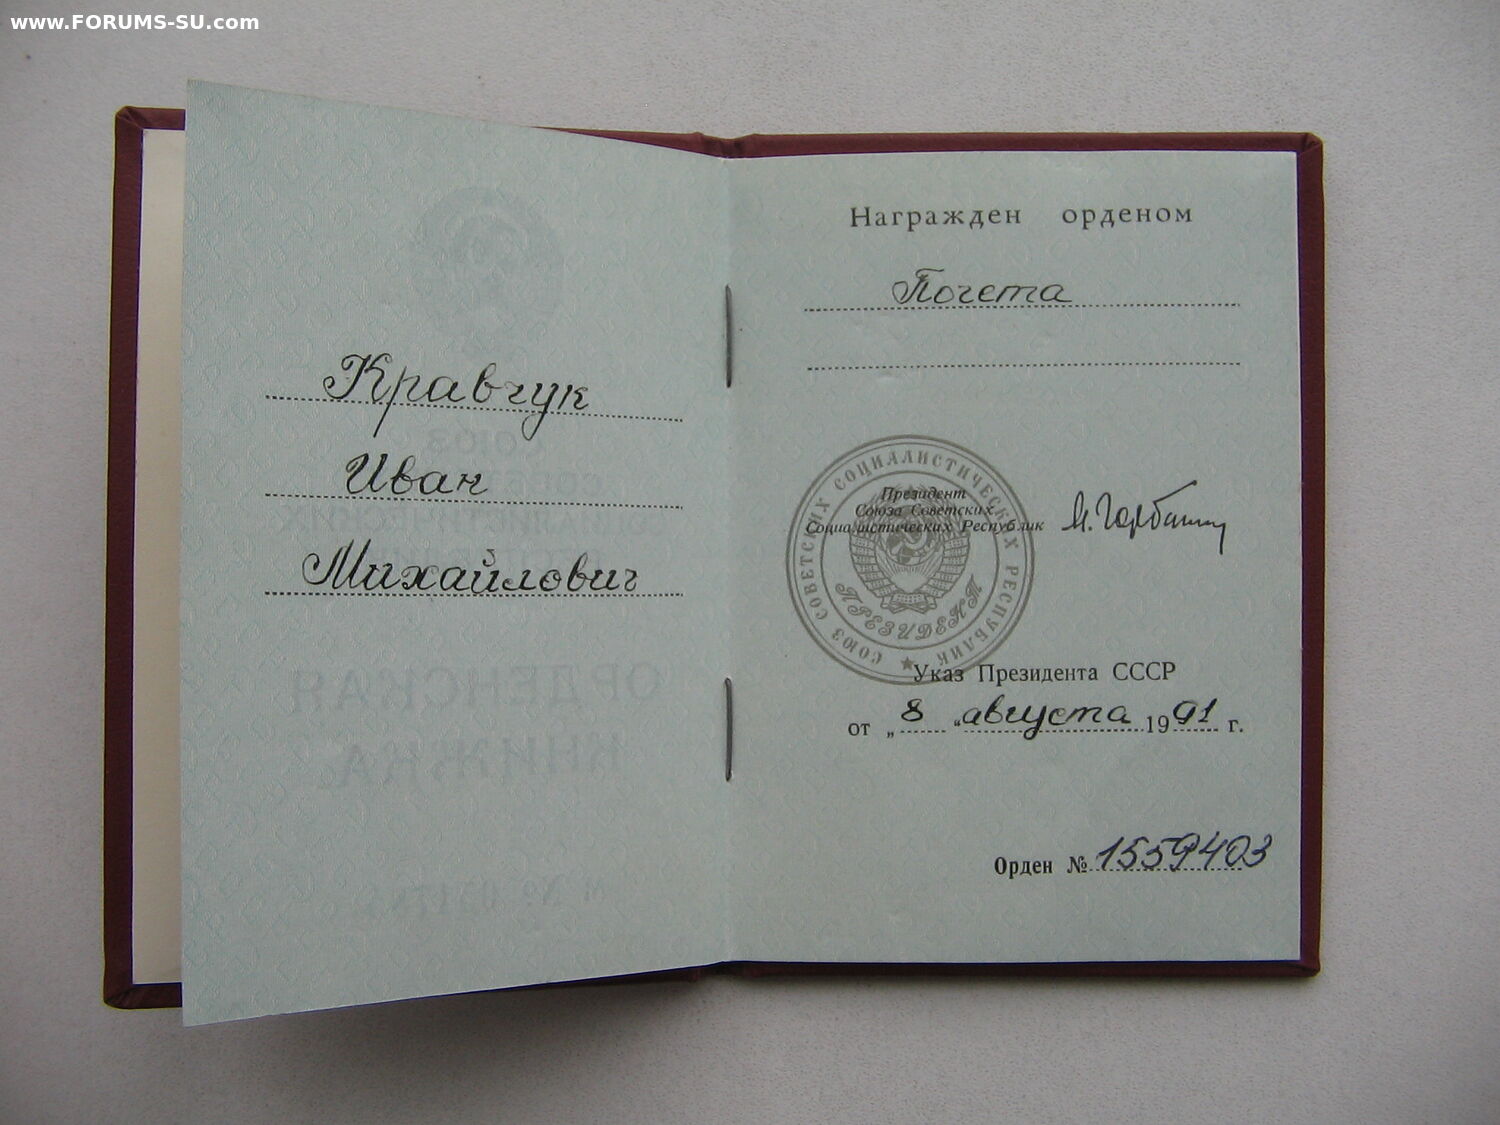 www.FORUMS-SU.com
Кравчук
Иван
Михайлович
Награжден орденом
Почета
СОЮЗ СОВЕТСКИХ СОЦИАЛИСТИЧЕСКИХ РЕСПУБЛИК
Президент
Союза Советских
Социалистических Республик
М. Горбачев
ПРЕЗИДЕНТ
Указ Президента СССР
от „ 8 “ августа 1991 г.
Орден № 1559403